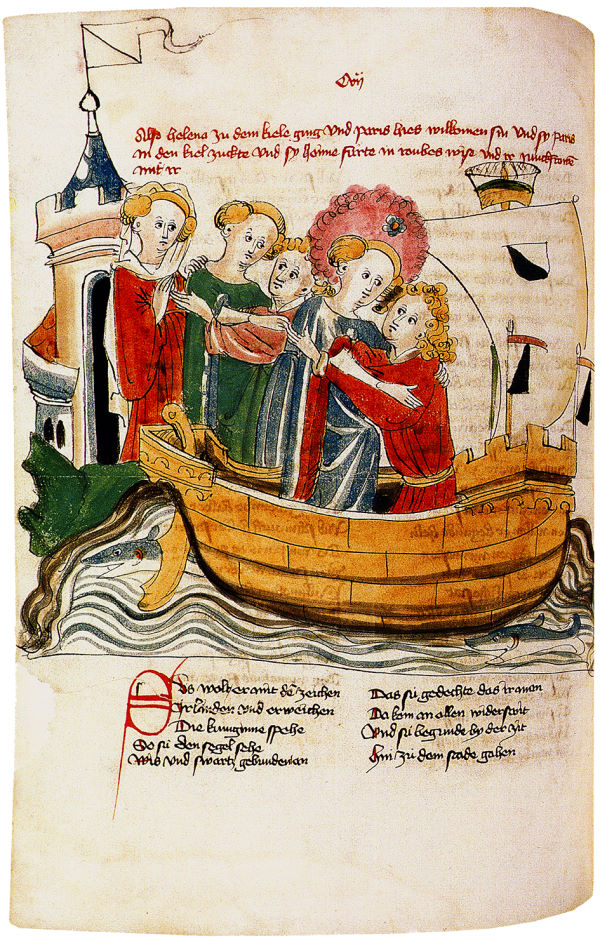 Cvij
Also helena zu dem kiele ging und paris hies willomen sin und sy paris
In den kiel zuckte und sy hôime fûrte in roubes wise und er
mit ir
Us wolt er mit dē zeichen
Irlinden und erweichen
Die kunginne spehe
So sú den segel sehe
Wis und swartz gebunden an
Das sú gedechte das truren
Do kom an allen widerstrit
Und sú begunde by der zit
Hin zu dem stade gahen